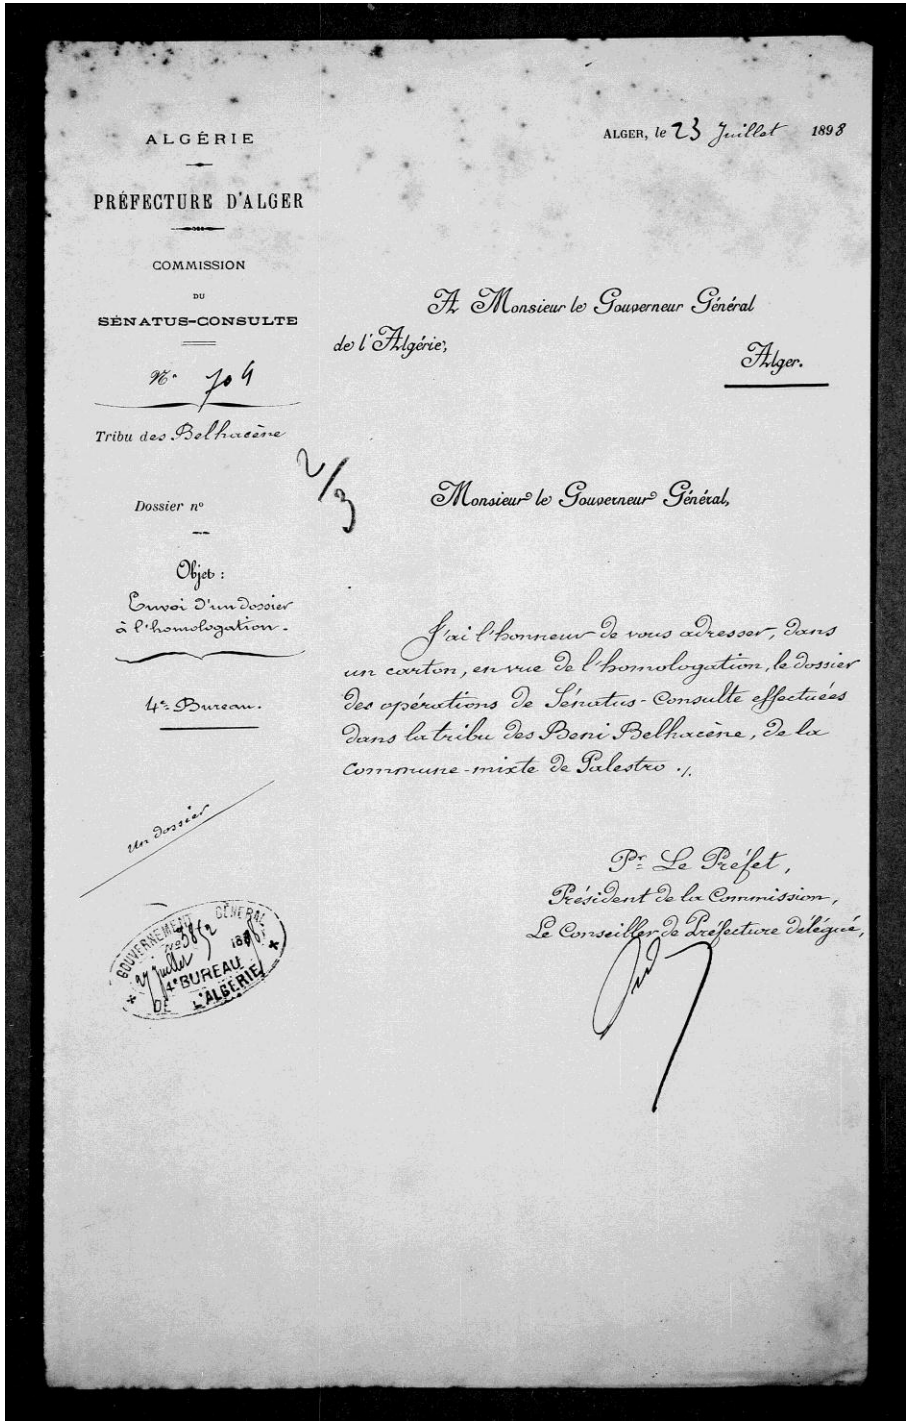 ALGÉRIE
PRÉFECTURE D'ALGER
COMMISSION
DU
SÉNATUS-CONSULTE
N° 704
Tribu des Belhacène
Dossier n°
Objet :
Envoi d'un dossier
à l'homologation.
4e Bureau.
un dossier
GOUVERNEMENT GÉNÉRAL
N° 3852 189
27 juillet
4e BUREAU
DE L'ALGÉRIE
ALGER, le 23 Juillet 1898
A Monsieur le Gouverneur Général
de l'Algérie,
Alger.
2/3
Monsieur le Gouverneur Général,
J'ai l'honneur de vous adresser, dans
un carton, en vue de l'homologation, le dossier
des opérations de Sénatus-Consulte effectuées
dans la tribu des Beni Belhacène, de la
Commune-mixte de Palestro ./.
Pr Le Préfet,
Président de la Commission,
Le Conseiller de Préfecture délégué,